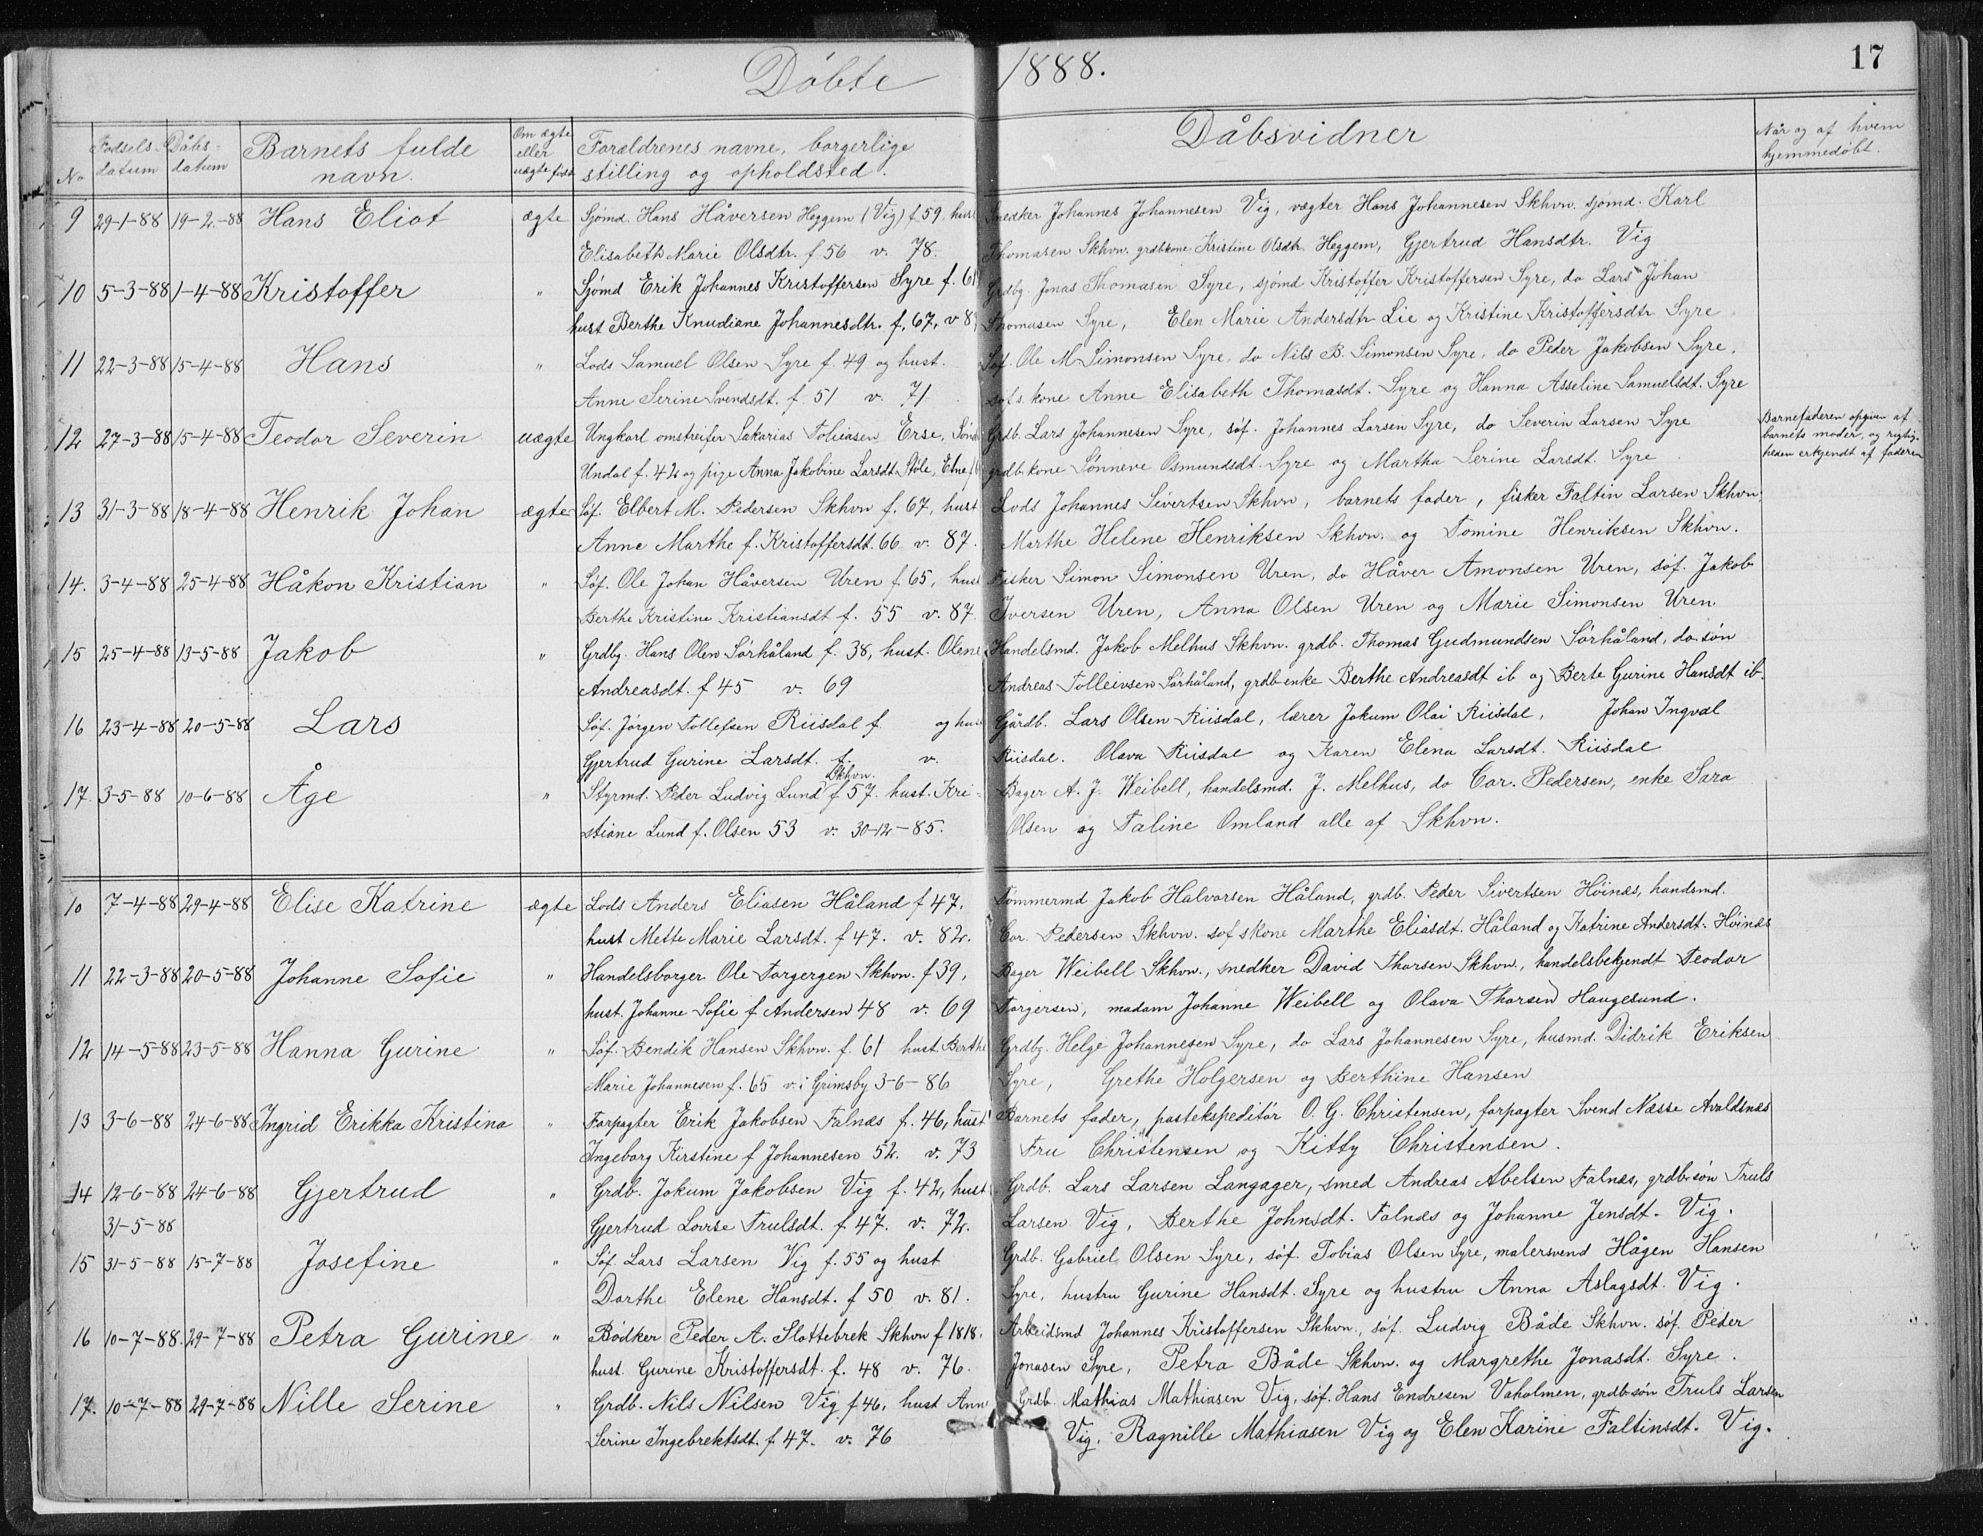 Döbte 1888.
17
No
Fødsels-datum
Dåbs-datum
Barnets fulde navn.
Om ægte eller uægte født
Forældrenes navne, borgerlige stilling og opholdsted.
Dåbsvidner
Når og af hvem hjemmedøbt.
9 29-1-88 19-2-88 Hans Eliot ægte Sjømd. Hans Håversen Heggem (Vig) f 59, hust Snedker Johannes Johannesen Vig, vægter Hans Johannesen Skhvn. sjømd. Karl
Elisabeth Marie Olsdtr. f 56 v. 78. Thomasen Skhvn. grdbkone Kristine Olsdtr. Heggem, Gjertrud Hansdtr. Vig
10 5-3-88 1-4-88 Kristoffer " Sjømd Erik Johannes Kristoffersen Syre f. 61 Grdbg. Jonas Thomasen Syre, sjømd Kristoffer Kristoffersen Syre, do Lars Johan
hust Berthe Knudiane Johannesdtr. f. 67, v 8 Thomasen Syre, Elen Marie Andersdtr Lie og Kristine Kristoffersdtr Syre
11 22-3-88 15-4-88 Hans " Lods Samuel Olsen Syre f. 49 og hust. Søf. Ole M. Simonsen Syre, do Nils B. Simonsen Syre, do Peder Jakobsen Syre,
Anne Serine Svendsdt. f. 51 v. 71 søfs. kone Anne Elisabeth Thomasdt. Syre og Hanna Asseline Samuelsdt. Syre
12 27-3-88 15-4-88 Teodor Severin uægte Ungkarl omstreifer Sakarias Toliasen Erse, Sønd Grdb. Lars Johannesen Syre, søf. Johannes Larsen Syre, do Severin Larsen Syre Barnefaderen opgiven af
Undal f. 42 og pige Anna Jakobine Larsdt Støle, Etne grdb kone Sønneve Osmundsdt. Syre og Martha Serine Larsdt. Syre barnets moder, og rigtig-
heden erkjendt af faderen
13 31-3-88 18-4-88 Henrik Johan ægte Søf. Elbert M. Pedersen Skhvn f. 67, hust Lods Johannes Sivertsen Skhvn, barnets fader, fisker Faltin Larsen Skhvn,
Anne Marthe f. Kristoffersdt. 66 v. 87. Marthe Helene Henriksen Skhvn. og Tomine Henriksen Skhvn.
14. 3-4-88 25-4-88 Håkon Kristian " Søf. Ole Johan Håversen Uren f 65, hust Fisker Simon Simonsen Uren, do Håver Amonsen Uren, søf. Jakob
Berthe Kristine Kristiansdt f. 55 v. 87 Iversen Uren, Anna Olsen Uren og Marie Simonsen Uren
15 25-4-88 13-5-88 Jakob " Grdbg. Hans Olsen Sörhåland f. 38, hust. Olene Handelsmd. Jakob Melhus Skhvn. grdb. Thomas Gudmundsen Sörhåland, do søn
Andreasdt. f 45 v. 69 Andreas Tolleivsen Sørhåland, grdb enke Berthe Andreasdt ib og Berte Gurine Hansdt ib.
16 23-4-88 20-5-88 Lars Søf. Jørgen Tollefsen Riisdal f. og hust Gårdb. Lars Olsen Riisdal, lærer Jokum Olai Riisdal, Johan Ingval
Gjertrud Gurine Larsdt. f. v. Riisdal. Olava Riisdal og Karen Elena Larsdt. Riisdal
17. 3-5-88 10-6-88 Åge " Styrmd. Peder Ludvig Lund Skhvn. f 57. hust. Kri- Bager A. J. Weibell, handelsmd. J. Melhus, do Cor. Pedersen, enke Sara
stiane Lund f. Olsen 53 v. 30-12-85. Olsen og Taline Omland alle af Skhvn.
10 7-4-88 29-4-88 Elise Katrine ægte Lods Anders Eliasen Håland f 47, Tømmermd Jakob Halvorsen Håland, grdb. Peder Sivertsen Høinæs, handsmd.
hust Mette Marie Larsdt. f 47. v. 82. Cor. Pedersen Skhvn. søfs kone Marthe Eliasdt. Håland og Katrine Andersdt. Høinæs
11 22-3-88 20-5-88 Johanne Sofie " Handelsborger Ole Torgergen Skhvn. f 39, Bager Weibell Skhvn., snedker David Thorsen Skhvn., handelsbekjendt Teodor
hust. Johanne Sofie f Andersen 48 v. 69 Torgersen, madam Johanne Weibell og Olava Thorsen Haugesund.
12 14-5-88 23-5-88 Hanna Gurine " Søf. Bendik Hansen Skhvn. f. 61 hust. Berthe Grdbg. Helge Johannesen Syre, do Lars Johannesen Syre, husmd. Didrik Eriksen
Marie Johannesen f. 65 v. i Grimsby 3-6-86 Syre, Grethe Holgersen og Berthine Hansen
13 3-6-88 24-6-88 Ingrid Erikka Kristina " Forpagter Erik Jakobsen Falnæs f. 46, hust Barnets fader, postekspeditör O. G. Christensen, forpagter Svend Næsse Avaldsnæs
Ingeborg Kirstine f Johannesen 52. v. 73 Fru Christensen og Kitty Christensen.
14 12-6-88 24-6-88 Gjertrud " Grdb. Jokum Jakobsen Vig f. 42, hust Grdb. Lars Larsen Langager, smed Andreas Abelsen Falnæs, grdbsøn Truls
31-5-88 Gjertrud Lovise Trulsdt. f 47. v. 72. Larsen Vig, Berthe Johnsdt. Falnæs og Johanne Jensdt. Vig.
15 31-5-88 15-7-88 Josefine " Søf. Lars Larsen Vig f. 55 og hust Grdb. Gabriel Olsen Syre, søf. Tobias Olsen Syre, malersvend Hågen Hansen
Dorthe Elene Hansdt. f 50 v. 81. Syre, hustru Gurine Hansdt. Syre og hustru Anna Aslagsdt. Vig.
16 10-7-88. 29-7-88 Petra Gurine " Bødker Peder A. Slottebrek Skhvn f 1818. Arbeidsmd Johannes Kristoffersen Skhvn., søf. Ludvig Både Skhvn. søf. Peder
hust. Gurine Kristoffersdt. f. 48 v. 76. Jonasen Syre, Petra Både Skhvn. og Margrethe Jonasdt. Syre.
17. 10-7-88 29-7-88 Nille Serine " Grdb. Nils Nilsen Vig f 46, hust Anne Grdb. Mathias Mathiasen Vig, søf. Hans Endresen Vaholmen, grdb søn Truls Larsen
Serine Ingebrektsdt. f. 47. v. 76 Vig. Ragnille Mathiasen Vig og Elen Karine Faltinsdt. Vig.